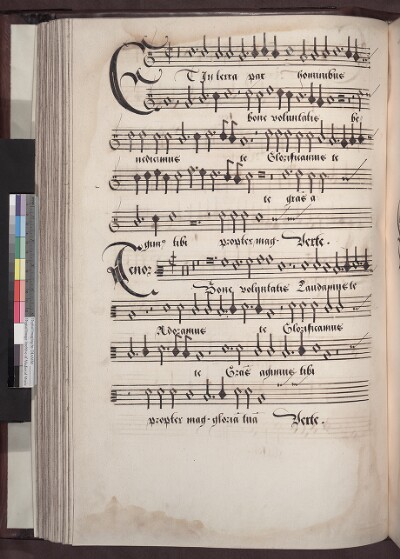 Et In terra pax hominibus
bone voluntatis be
nedicimus te Glorificamus te
te gras a
gim9 tibi propter mag- Verte.
Tenor
Bone voluntatis Laudamus te
Adoramus te Glorificamus
te Gras agimus tibi
propter mag- gloriā tuā Verte.